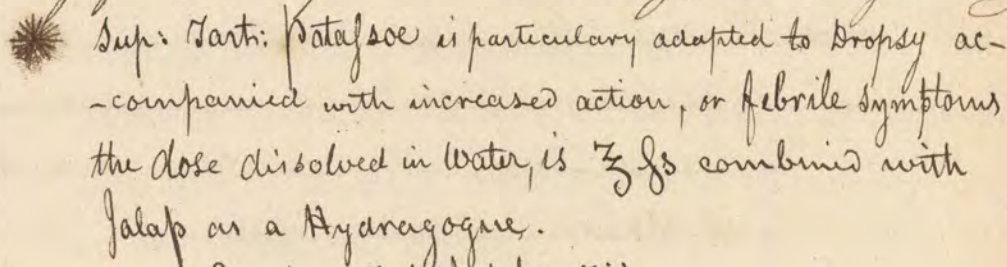 Sup: Tart: Potaſsoe is particulary adapted to Dropsy ac-
-companied with increased action, or febrile symptoms
the dose dissolved in Water, is ℥ ſs combined with
Jalap as a Hydragogue.